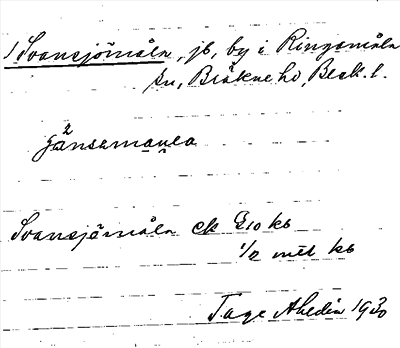 1 Svansjömåla, jb, by i Ringamåla
sn, Bräkne hd, Blek. l.
2
jänsamåla
Svansjömåla ek E10 kb
1/2 mtl kb
Tage Ahldin 1930